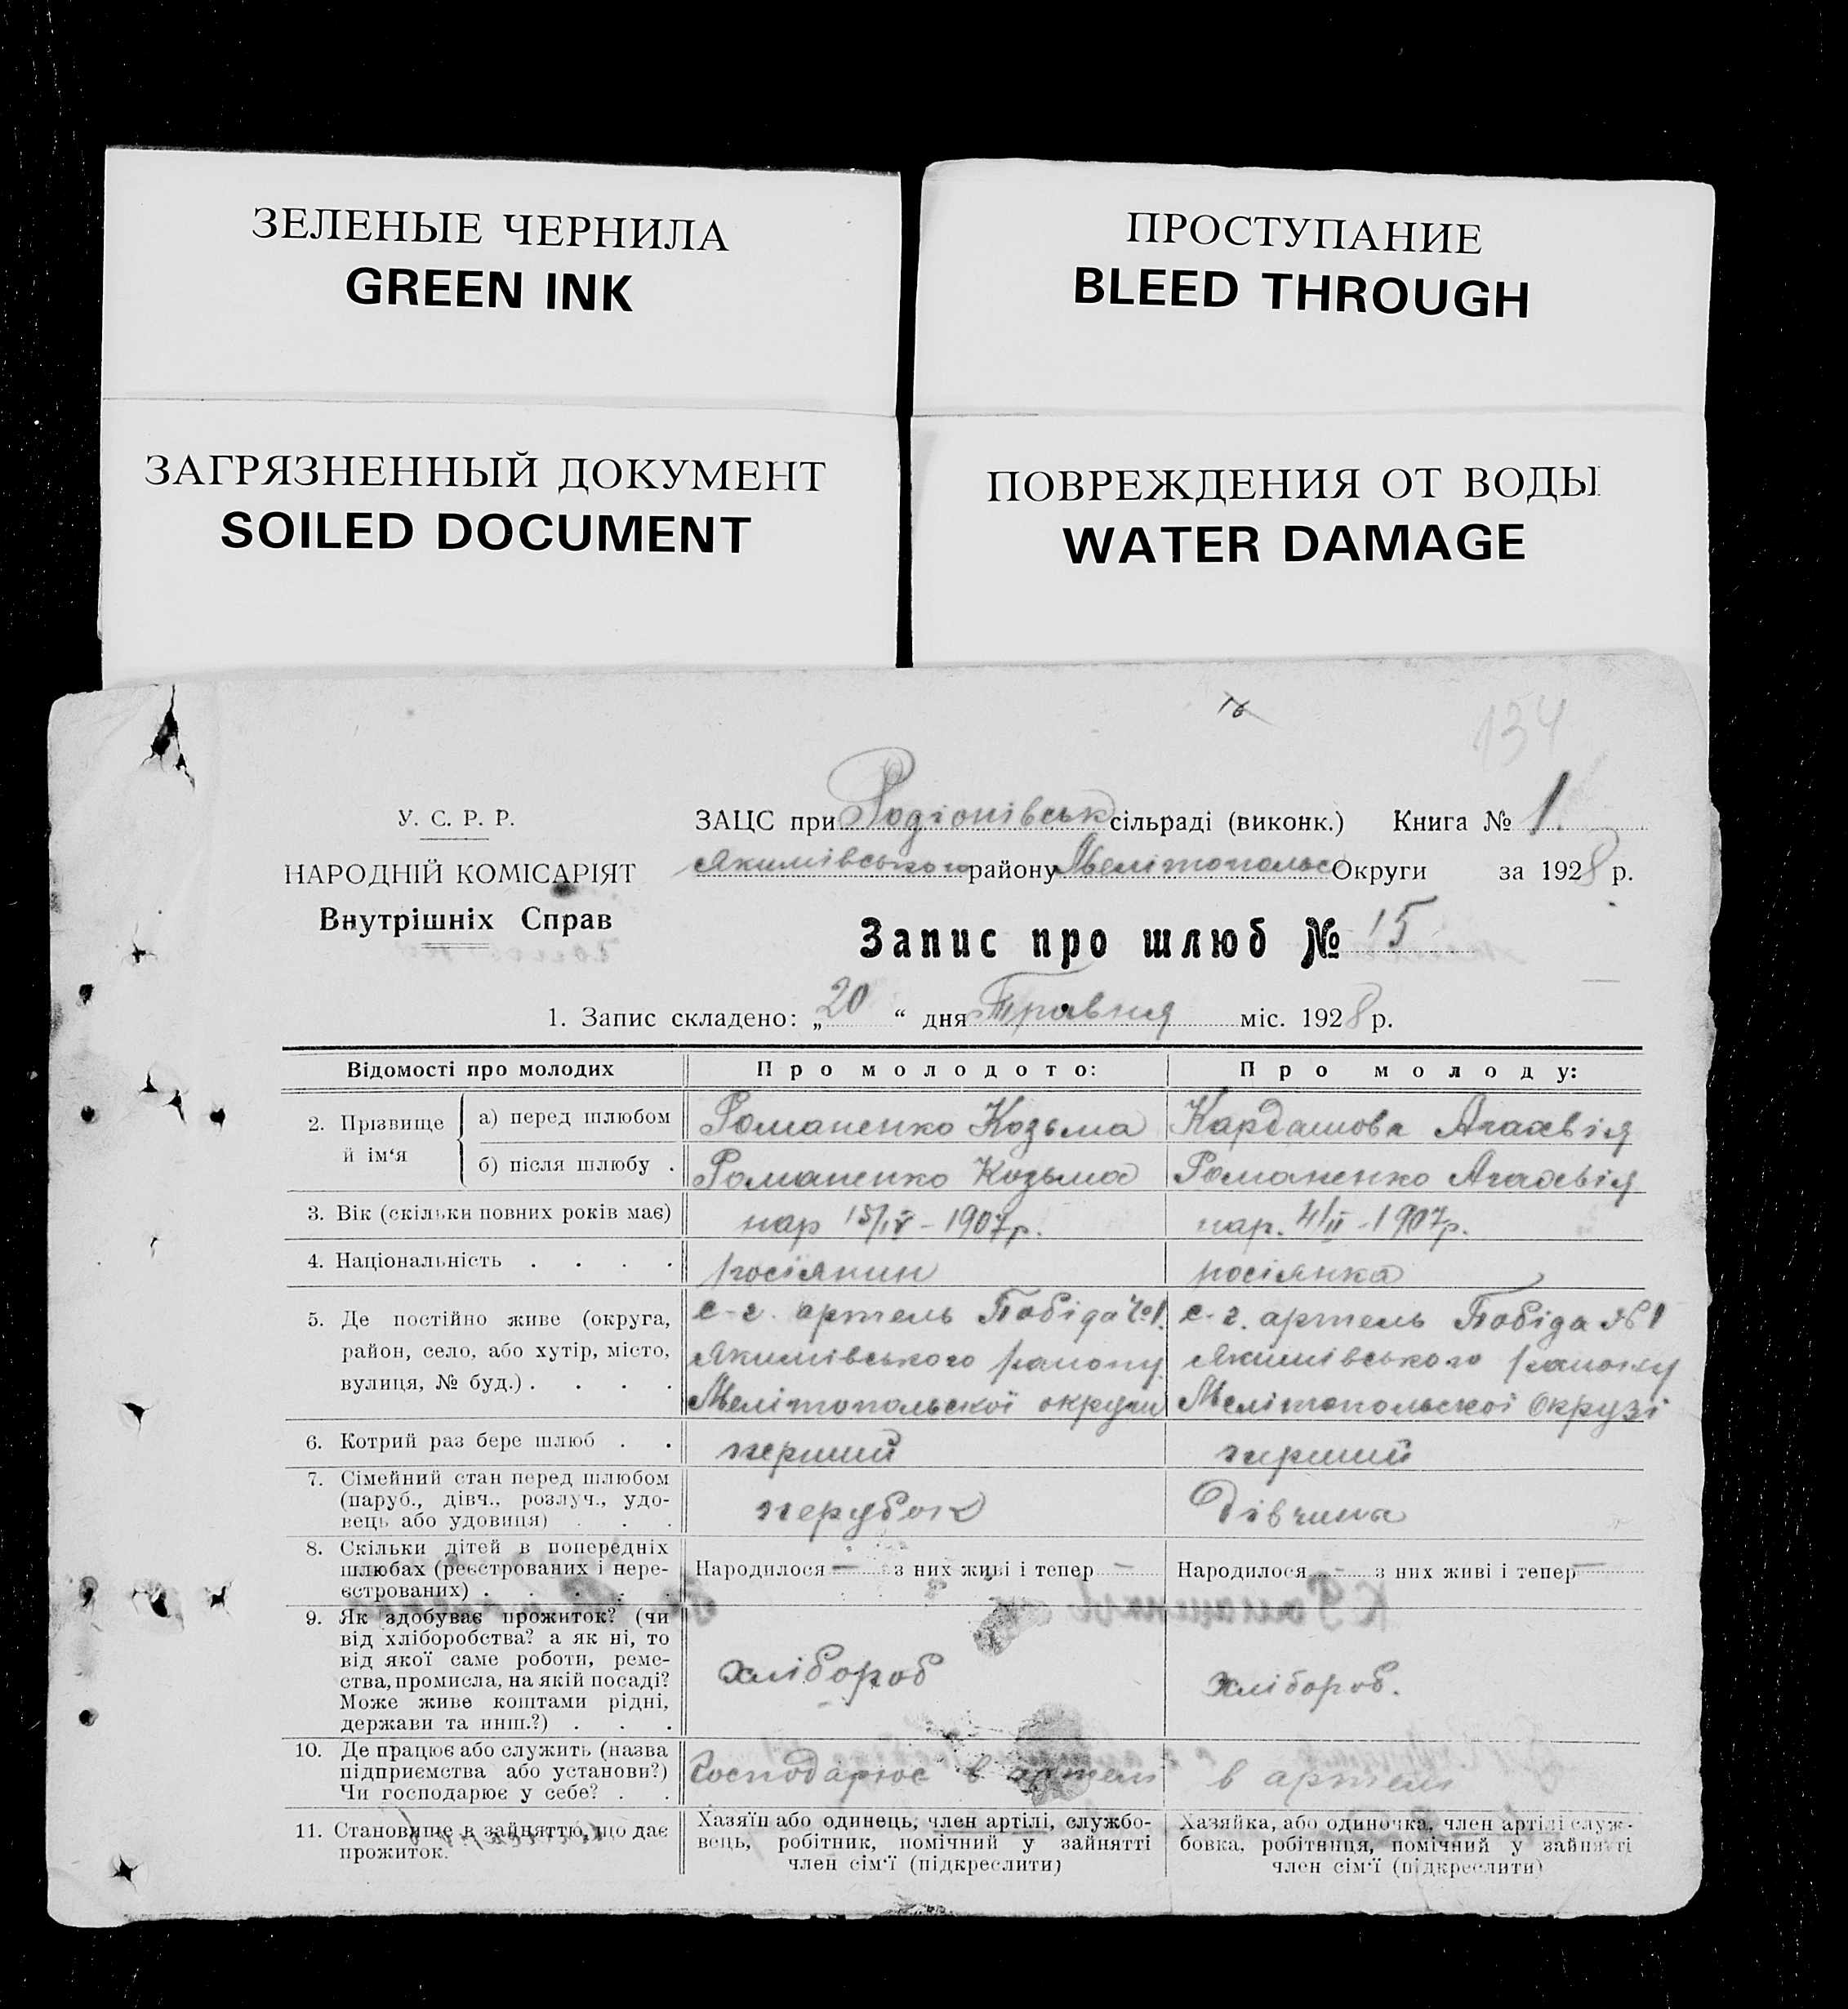 ЗЕЛЕНЫЕ ЧЕРНИЛА
GREEN INK
ПРОСТУПАНИЕ
BLEED THROUGH
ЗАГРЯЗНЕННЫЙ ДОКУМЕНТ
SOILED DOCUMENT
ПОВРЕЖДЕНИЯ ОТ ВОДЫ
WATER DAMAGE
16
134
У. С. Р. Р.
НАРОДНІЙ КОМІСАРІЯТ
Внутрішніх Справ
ЗАЦС при Родіонівськ сільраді (виконк.) Книга № 1.
Якимівського району Мелітопольс Округи за 1928 р.
Запис про шлюб № 15
1. Запис складено: „20“ дня Травня міс. 1928 р.
Відомості про молодих
Про молодого:
Про молоду:
2. Прізвище й ім‘я
а) перед шлюбом
Романенко Козьма
Кардашова Агафвія
б) після шлюбу .
Романенко Козьма
Романенко Агафвія
3. Вік (скільки повних років має)
нар 15/IV - 1907р.
нар. 4/II - 1907р.
4. Національність . . . .
росіянин
росіянка
5. Де постійно живе (округа,
район, село, або хутір, місто,
вулиця, № буд.) . . . .
с-г. артель Побіда №1.
Якимівського району
Мелітопольскої округи
с-г. артель Побіда №1
Якимівського району
Мелітопольскої Окрузі
6. Котрий раз бере шлюб . .
перший
перший
7. Сімейний стан перед шлюбом
(паруб., дівч., розлуч., удо-
вець або удовиця) . . .
перубок
Дівчина
8. Скільки дітей в попередніх
шлюбах (реєстрованих і нере-
єстрованих) . . . . .
Народилося — з них живі і тепер —
Народилося - з них живі і тепер —
9. Як здобуває прожиток? (чи
від хліборобства? а як ні, то
від якої саме роботи, реме-
ства, промисла, на якій посаді?
Може живе коштами рідні,
держави та инш.?) . . .
хлібороб
хлібороб.
10. Де працює або служить (назва
підприємства або установи?)
Чи господарює у себе? . .
Господарює в артелі
в артелі
11. Становище в зайняттю, що дає
прожиток.
Хазяїн або одинець, член артілі, службо-
вець, робітник, помічний у зайнятті
член сім‘ї (підкреслити)
Хазяйка, або одиночка, член артілі служ-
бовка, робітниця, помічний у зайнятті
член сім‘ї (підкреслити)